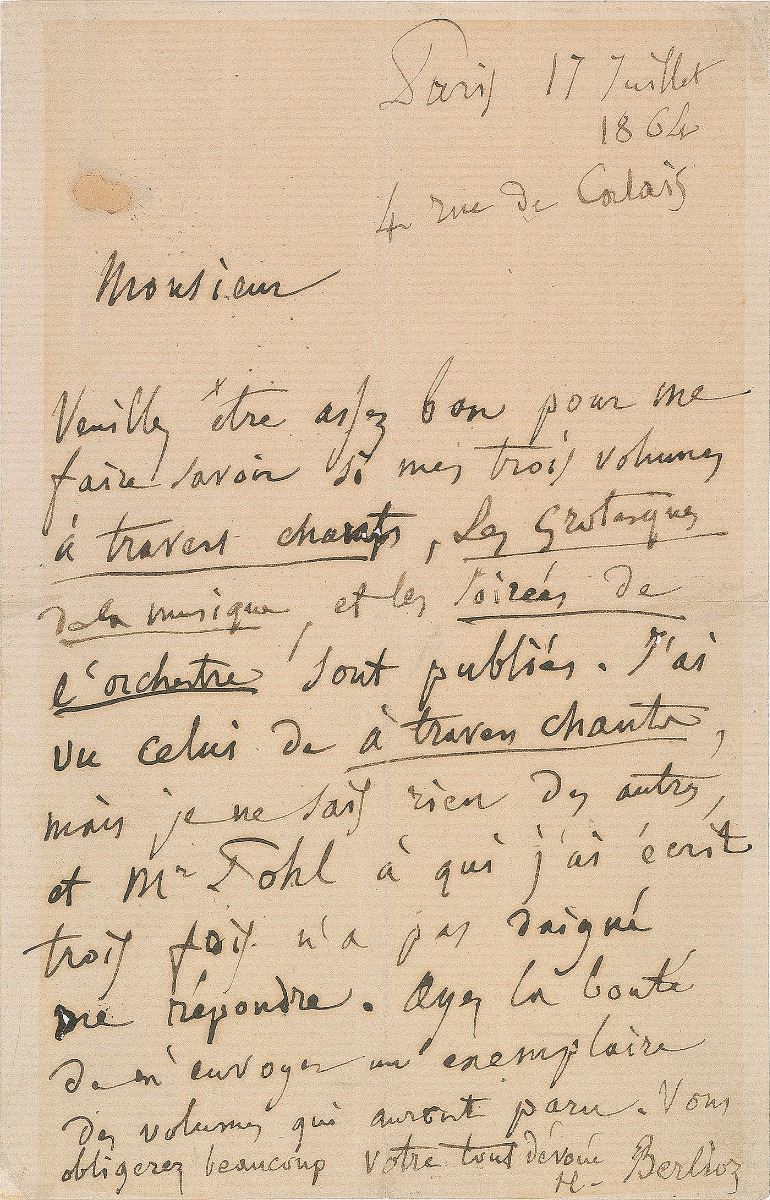 Paris 17 Juillet
1864
4 rue de Calais
Monsieur
Veuillez être assez bon pour me
faire savoir si mes trois volumes
à travers chants, Les Grotesques
de la musique, et les soirées de
l'orchestre sont publiés. J'ai
vu celui de à travers chants,
mais je ne sais rien des autres,
et Mr Pohl à qui j'ai écrit
trois fois n'a pas daigné
me répondre. Ayez la bonté
de m'envoyer un exemplaire
des volumes qui auront paru. Vous
obligerez beaucoup votre tout dévoué
H. Berlioz